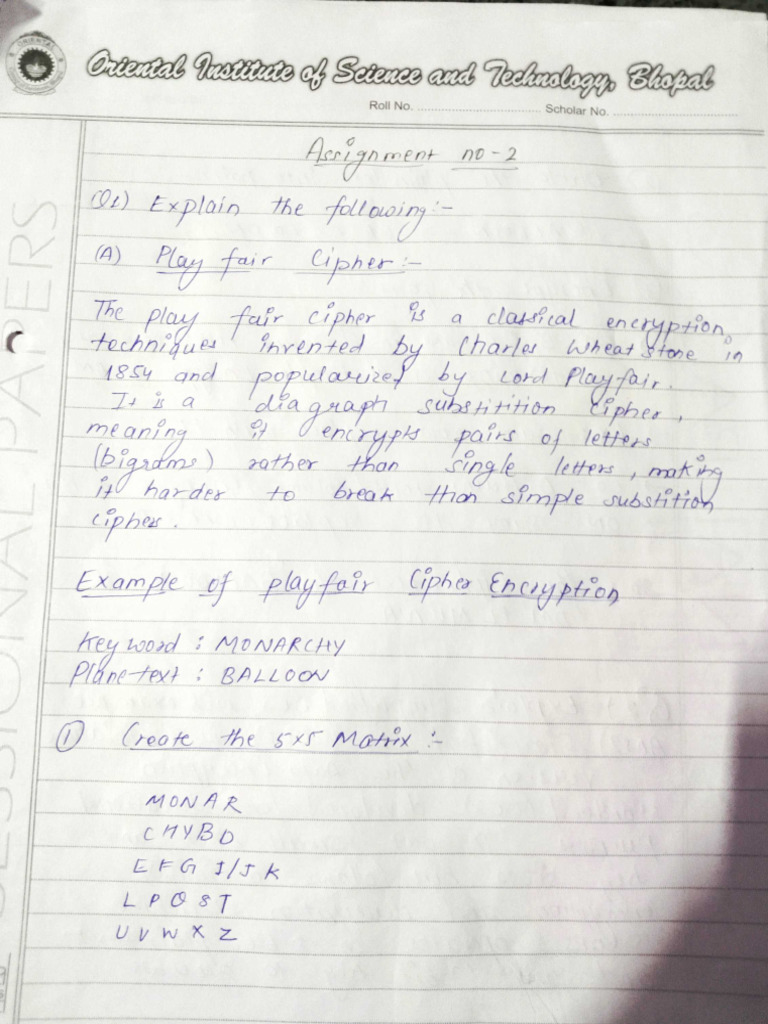 Oriental Institute of Science and Technology, Bhopal
Roll No. .............................. Scholar No. ..............................
Assignment no-2
Q1) Explain the following:-
(A) Play fair Cipher:-
The play fair cipher is a classical encryption
techniques invented by Charles Wheat stone in
1854 and popularized by Lord Playfair.
It is a diagraph substirition cipher,
meaning it encrypts pairs of letters
(bigrams) rather than single letters, making
it harder to break than simple substition
ciphers.
Example of playfair Cipher Encryption
Key word : MONARCHY
Plane-text : BALLOON
① Create the 5x5 Matrix :-
MONAR
CHYBD
EFG I/J K
L P Q S T
U V W X Z
SESSIONAL PAPERS